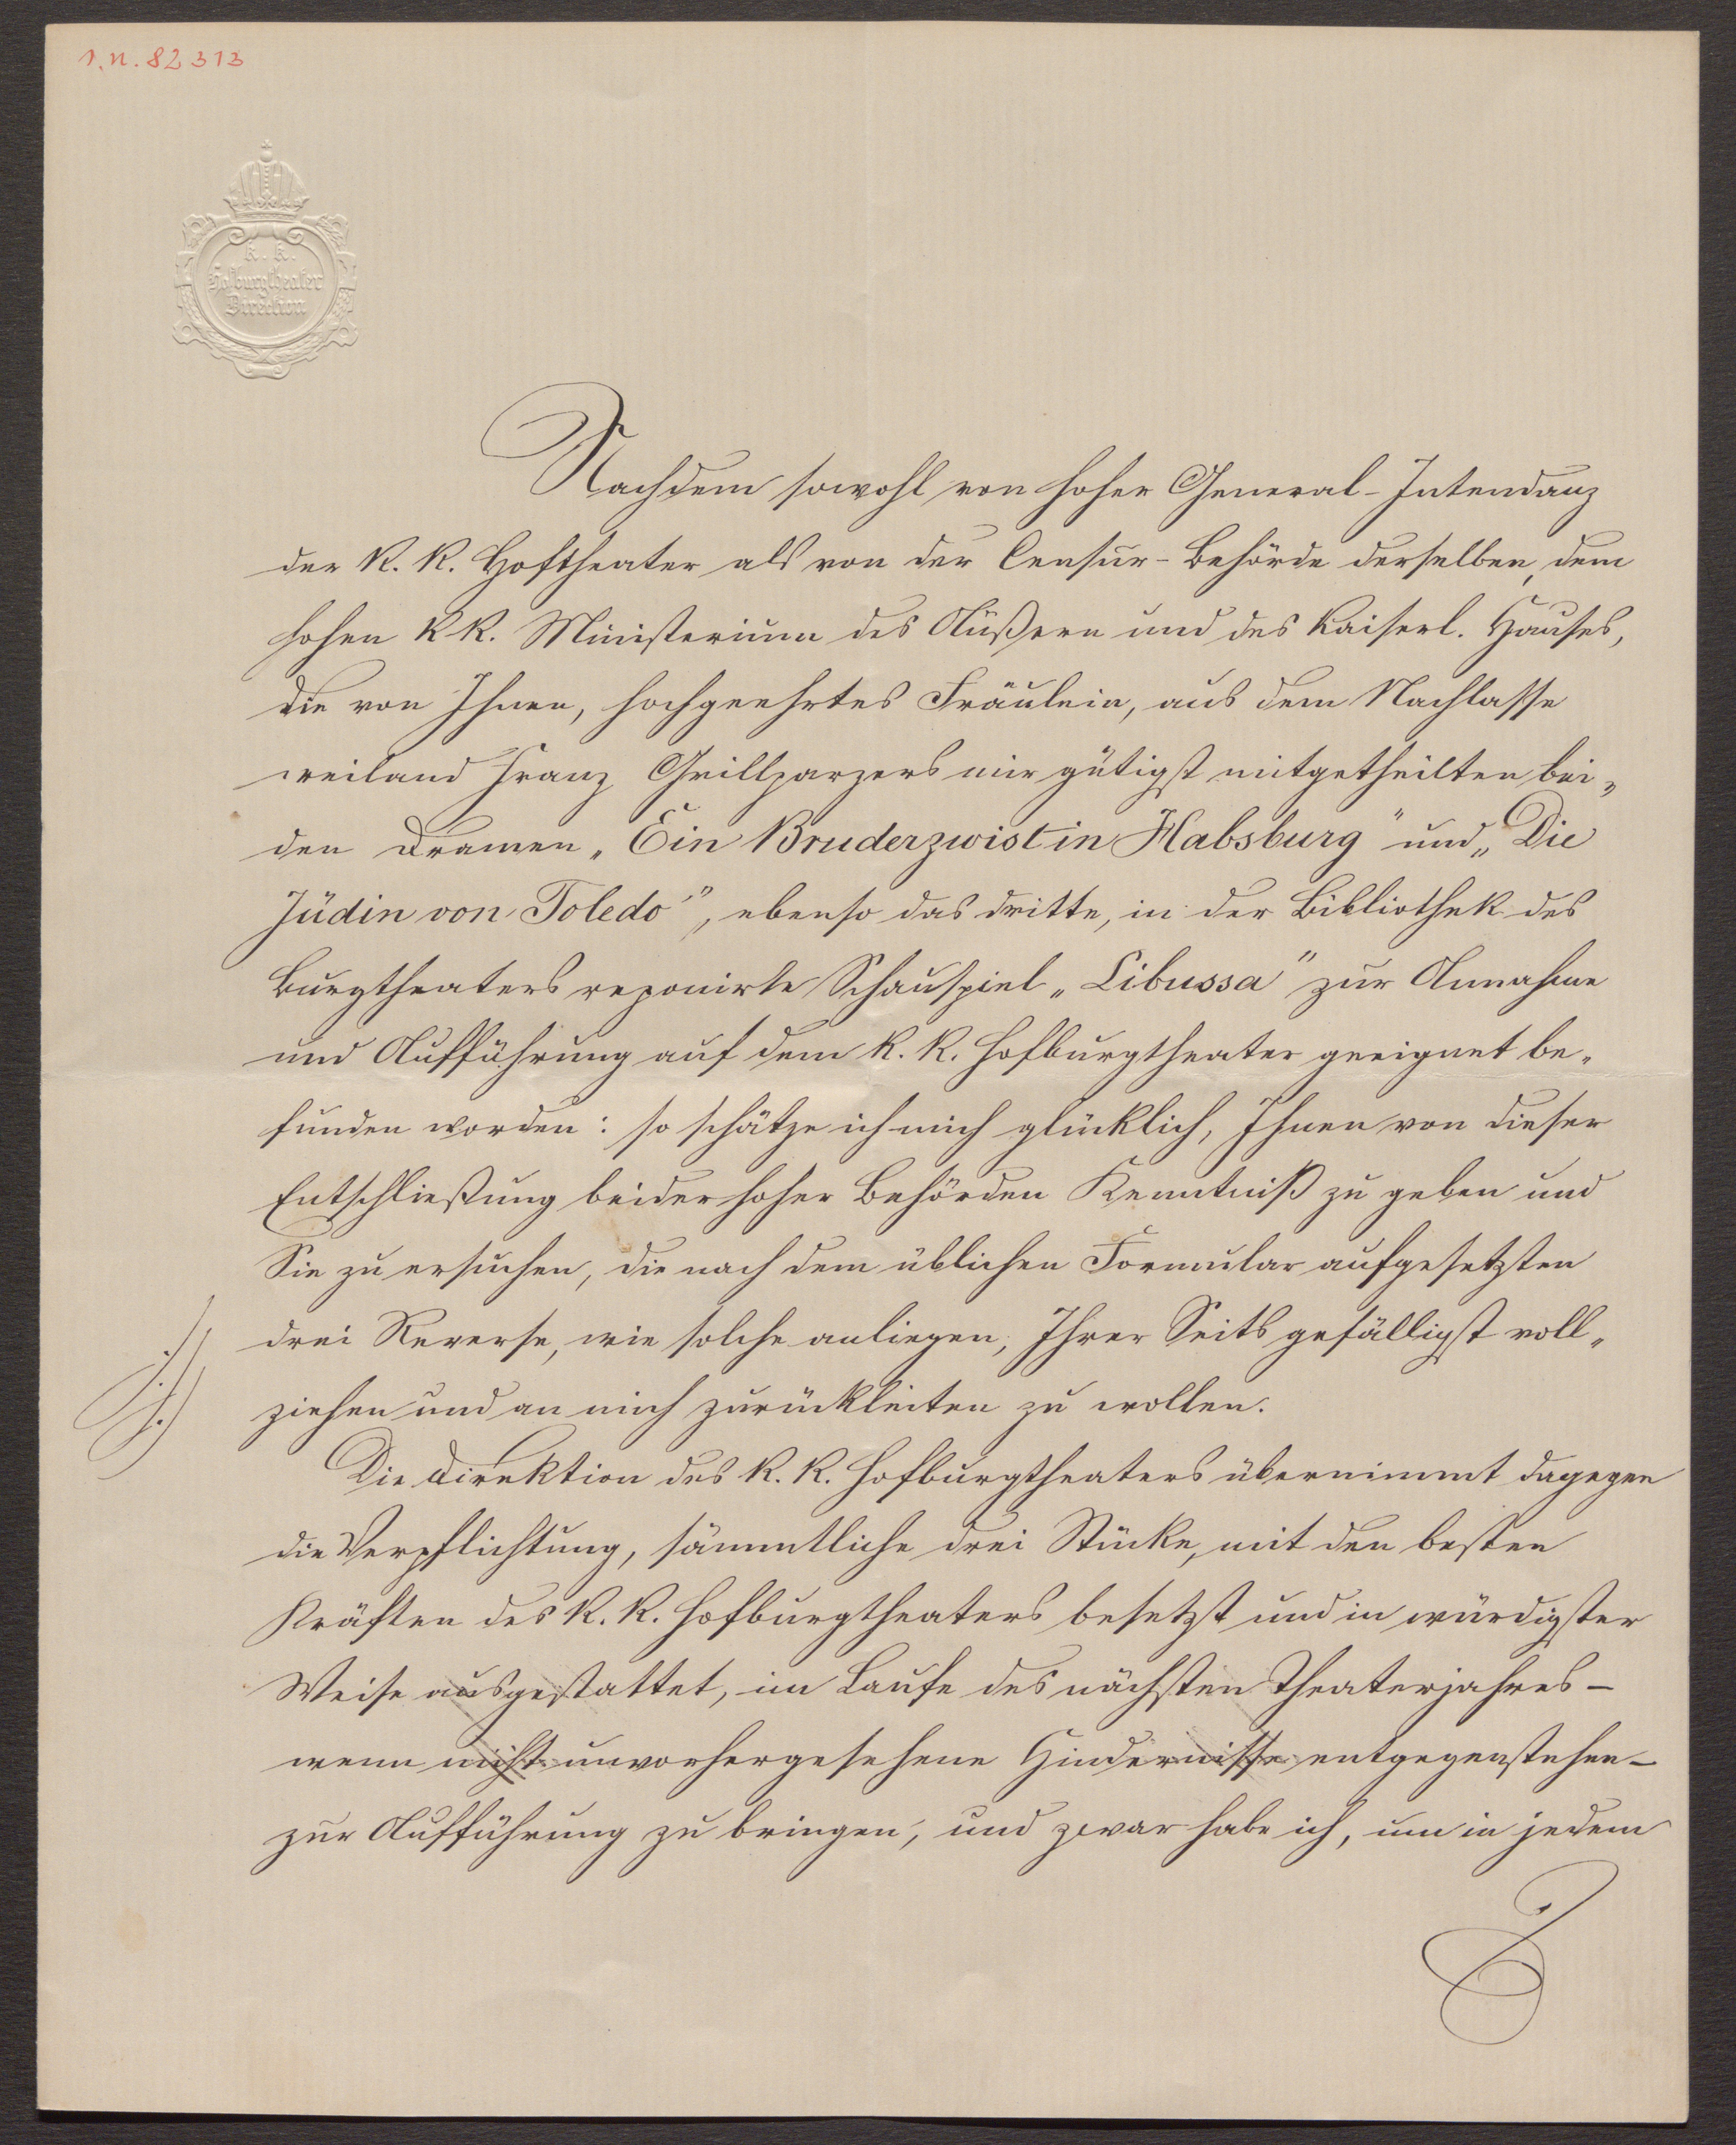 I.N. 82313
K. K.
Hofburgtheater
Direction
Nachdem sowohl von hoher General-Intendanz
der K. K. Hoftheater als von der Censur-Behörde derselben, dem
hohen K K. Ministerium des Äußern und des Kaiserl. Hauses,
die von Ihnen, hochgeehrtes Fräulein, aus dem Nachlasse
weiland Franz Grillparzers mir gütigst mitgetheilten bei„
den Dramen „Ein Bruderzwist in Habsburg" und „Die
Jüdin von Toledo", ebenso das dritte, in der Bibliothek des
Burgtheaters reponirte Schauspiel „Libussa" zur Annahme
und Aufführung auf dem K. K. Hofburgtheater geeignet be„
funden worden: so schätze ich mich glücklich, Ihnen von dieser
Entschließung beider hoher Behörden Kenntniß zu geben und
Sie zu ersuchen, die nach dem üblichen Formular aufgesetzten
drei Reverse, wie solche anliegen, Ihrer Seits gefälligst voll„
ziehen und an mich zurückleiten zu wollen.
Die Direktion des K. K. Hofburgtheaters übernimmt dagegen
die Verpflichtung, sämmtliche drei Stücke, mit den besten
Kräften des K. K. Hofburgtheaters besetzt und in würdigster
Weise ausgestattet, im Laufe des nächsten Theaterjahres –
wenn nicht unvorhergesehene Hindernisse entgegenstehen –
zur Aufführung zu bringen, und zwar habe ich, um in jedem